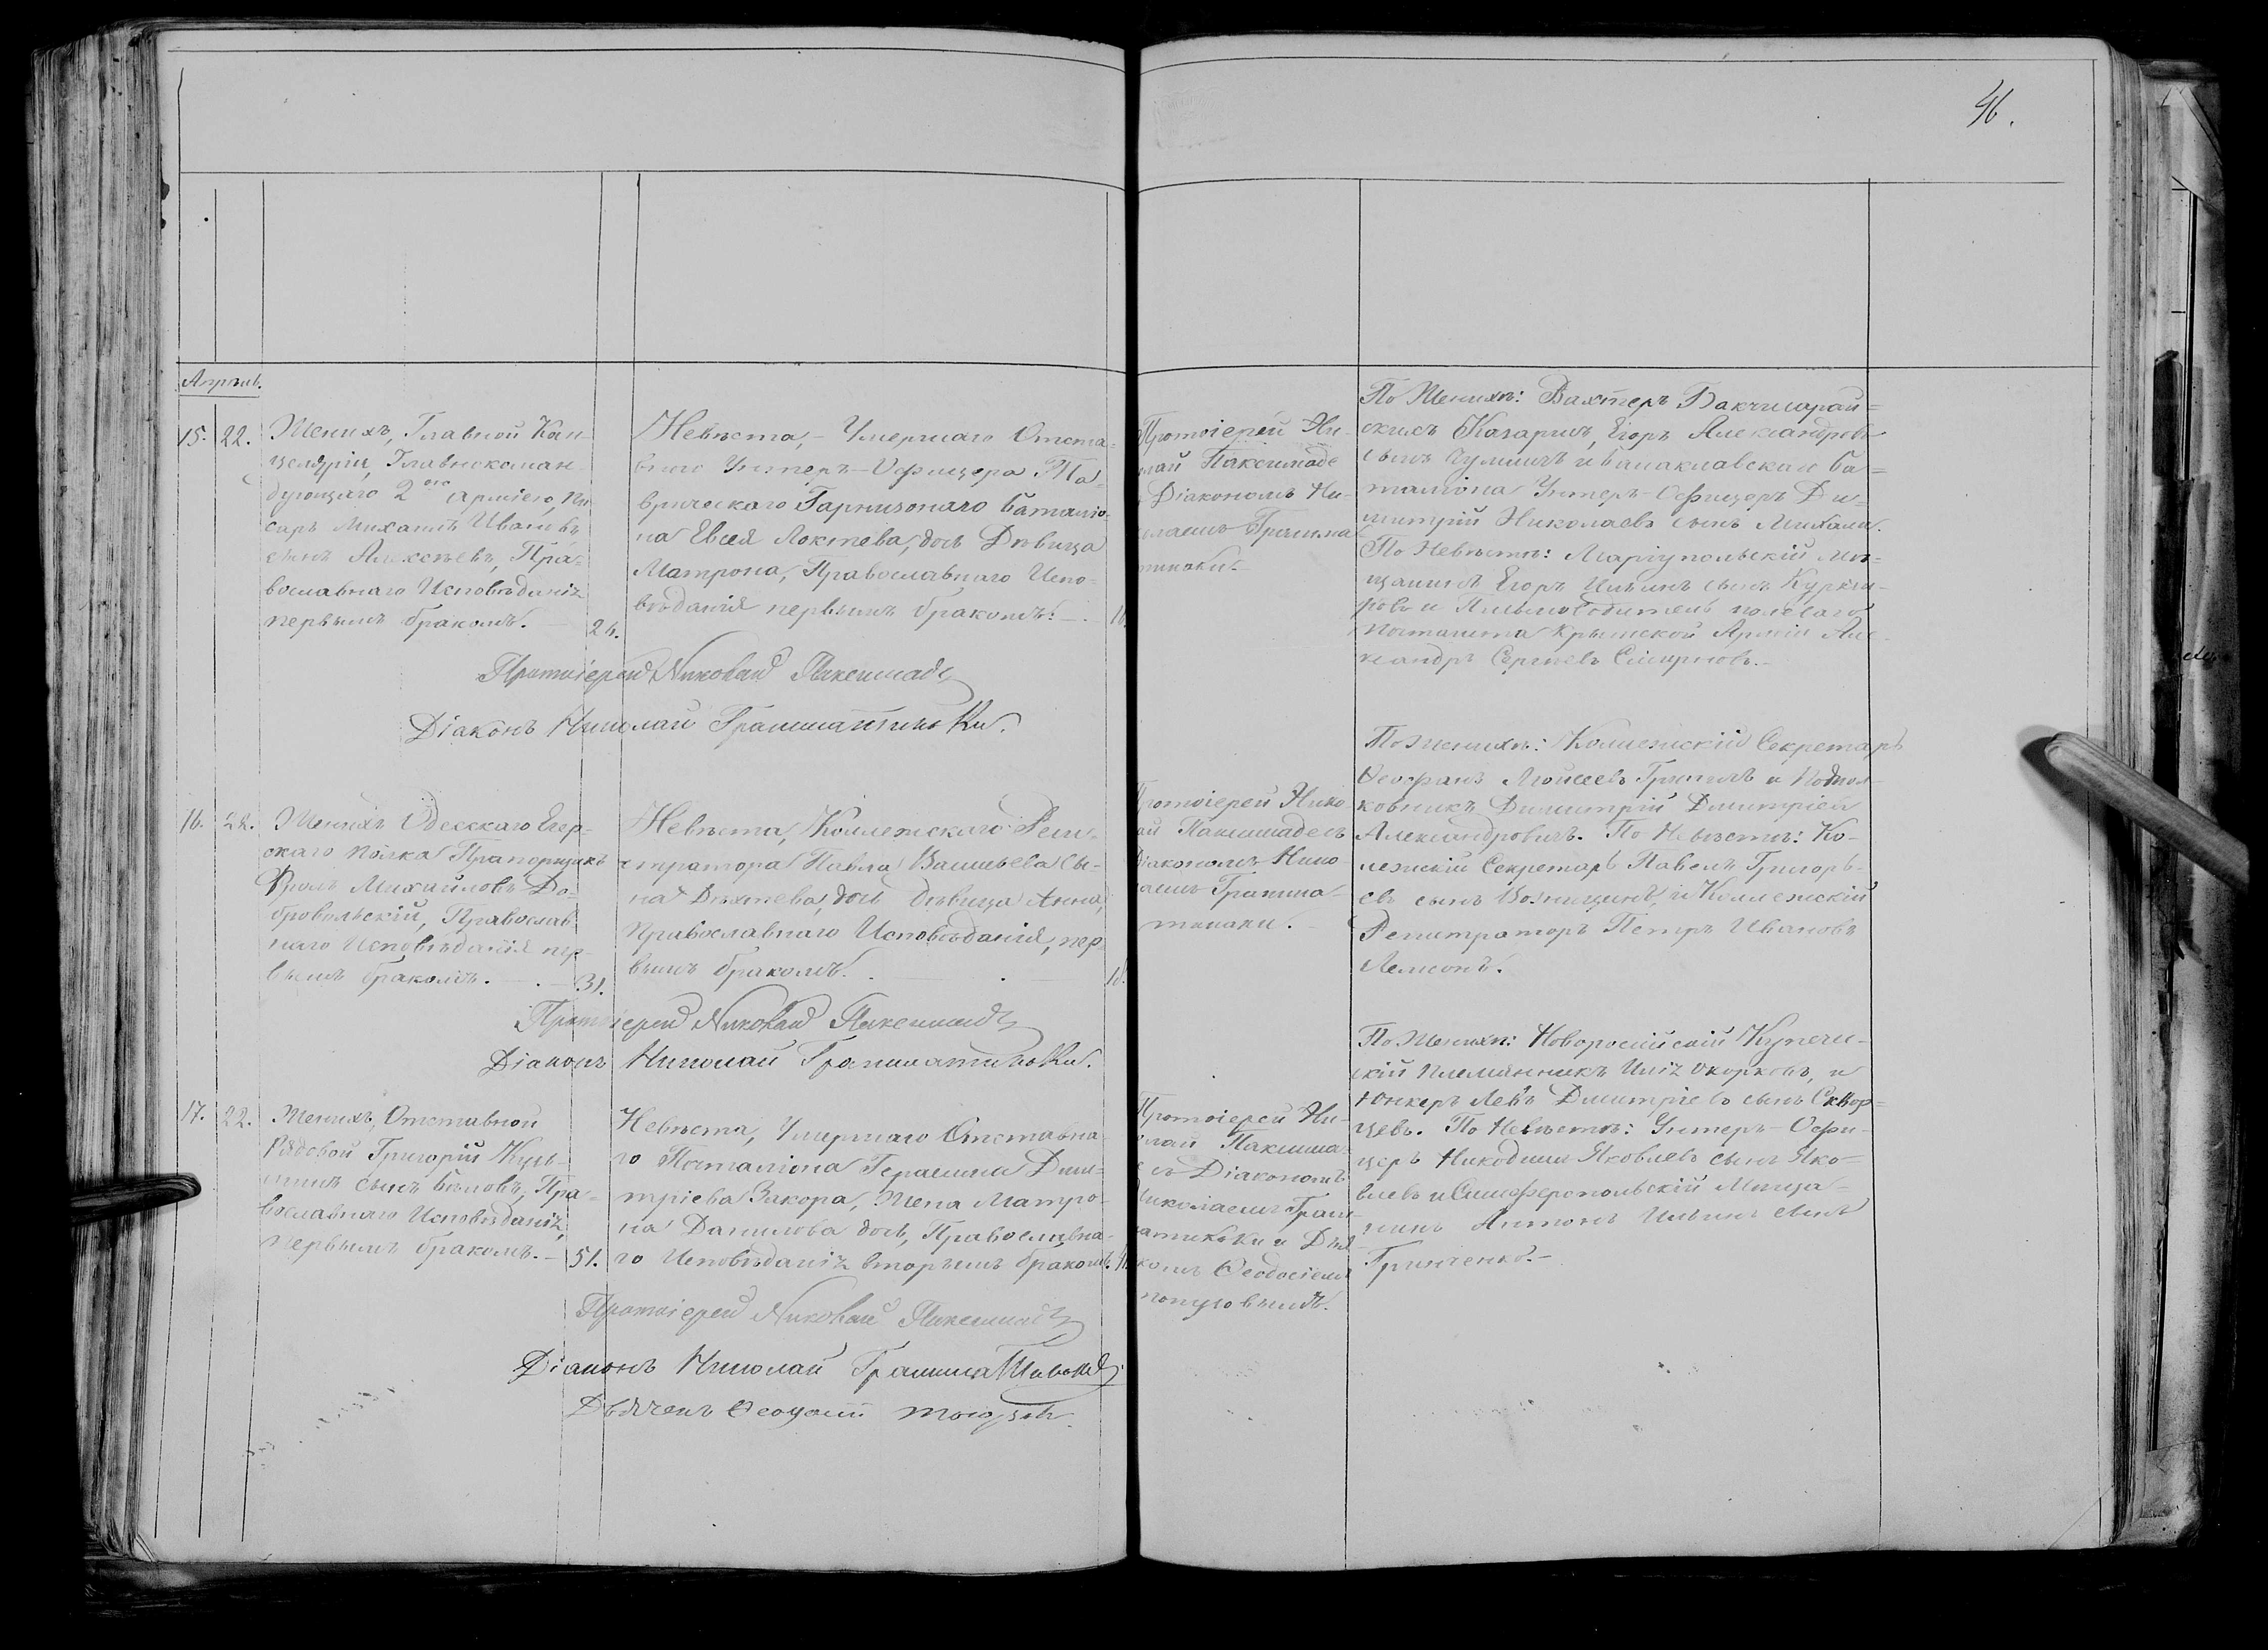 46.
Апрѣль.
15. 22.
Женихъ, Главной Кан-
целяріи, Главнокоман-
дующаго 2ою арміею, Пи
сарь Михаилъ Ивановъ
сынъ Алексѣевъ, Пра=
вославнаго Исповѣданія
первымъ бракомъ. —
26.
Невѣста, – Умершаго Отста-
внаго Унтеръ-Офицера Та-
врическаго Гарнизонаго баталіо-
на Евсея Локтева, дочь Дѣвица
Матрона, Православнаго Испо-
вѣданія первымъ бракомъ. —
Протоіерей Николай Паксимаде
Діаконъ Николай Грамматикаки.
Протоіерей Ни-
лай Паксимаде
Діакономъ Ни-
лаемъ Грамма
тикаки.
По Женихѣ: Вахтеръ Бакчисарай=
скихъ Казармъ, Егоръ Александровъ
сынъ и Балаклавскаго ба=
таліона Унтеръ-Офицеръ Ди-
митрій Николаевъ сынъ Михали.
По Невѣстѣ: Маріупольскій Мѣ-
щанинъ Егоръ Ильинъ сынъ
и Письмоводитель полеваго
Почтамта Крымской Арміи Але-
ксандръ Сергѣевъ Смирновъ. –
16. 22.
Женихъ Одесскаго Егер-
скаго полка Прапорщикъ
Фролъ Михайловъ До-
бровольскій, Православ
наго Исповѣданія пер-
вымъ бракомъ. — . —
31.
Невѣста, Коллежскаго Реги-
стратора Павла Васильева сы-
на дочь дѣвица Анна,
Православнаго Исповѣданія, пер
вымъ бракомъ.
18.
Протоіерей Николай Паксимаде
Діаконъ Николай Грамматикаки.
Протоіерей Нико-
ай Паксимаде съ
Діакономъ Нико-
лаемъ Грамма-
тикаки.
По Женихѣ: Коллежскій Секретарь
Ѳеофанъ Моисеевъ и Подпол-
ковникъ Димитрій Дмитріевъ
Александровичъ. По Невѣстѣ: Ко-
лежскій Секретарь Павелъ Григорь-
евъ сынъ Возницынъ, и Коллежскій
Регистраторъ Петръ Ивановъ
17. 22.
Женихъ, Отставной
Рядовой Григорій Кузь-
минъ сынъ Бѣловъ, Пра=
вославнаго Исповѣданія,
первымъ бракомъ. —
51.
Невѣста, Умершаго Отставна-
го Герасима Дми-
тріева Закора, Жена Матро-
на Данилова дочь, Православна-
го Исповѣданія вторымъ бракомъ.
Протоіерей Николай Паксимаде
Діаконъ Николай Грамматикаки
Дьячекъ Ѳеодосій
Протоіерей Ни-
олай Паксима-
де съ Діакономъ
Николаемъ Грам-
матикаки и Дья
комъ Ѳеодосіемъ
По Женихѣ: Новоросійскій Купече-
скій племянникъ Илія Окорковъ, и
Юнкеръ Левъ Дмитріевъ сынъ Сквор=
цевъ. По Невѣстѣ: Унтеръ-Офи-
церъ Никодимъ Яковлевъ сынъ Яко-
влевъ и Симферопольскій Мѣща-
нинъ Антонъ Ильинъ сынъ
Гринченко. –